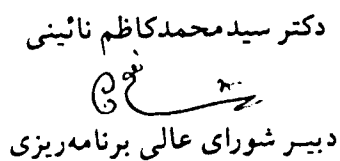 دکتر سیدمحمدکاظم نائینی
دبیر شورای عالی برنامه‌ریزی